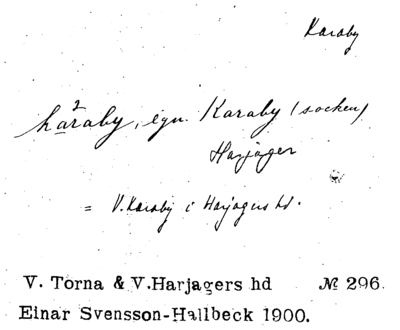 Karaby
håraby, egn. Karaby (socken)
Harjager
= V. Karaby i Harjagers hd.
V. Torna & V.Harjagers hd № 296.
Einar Svensson-Hallbeck 1900.